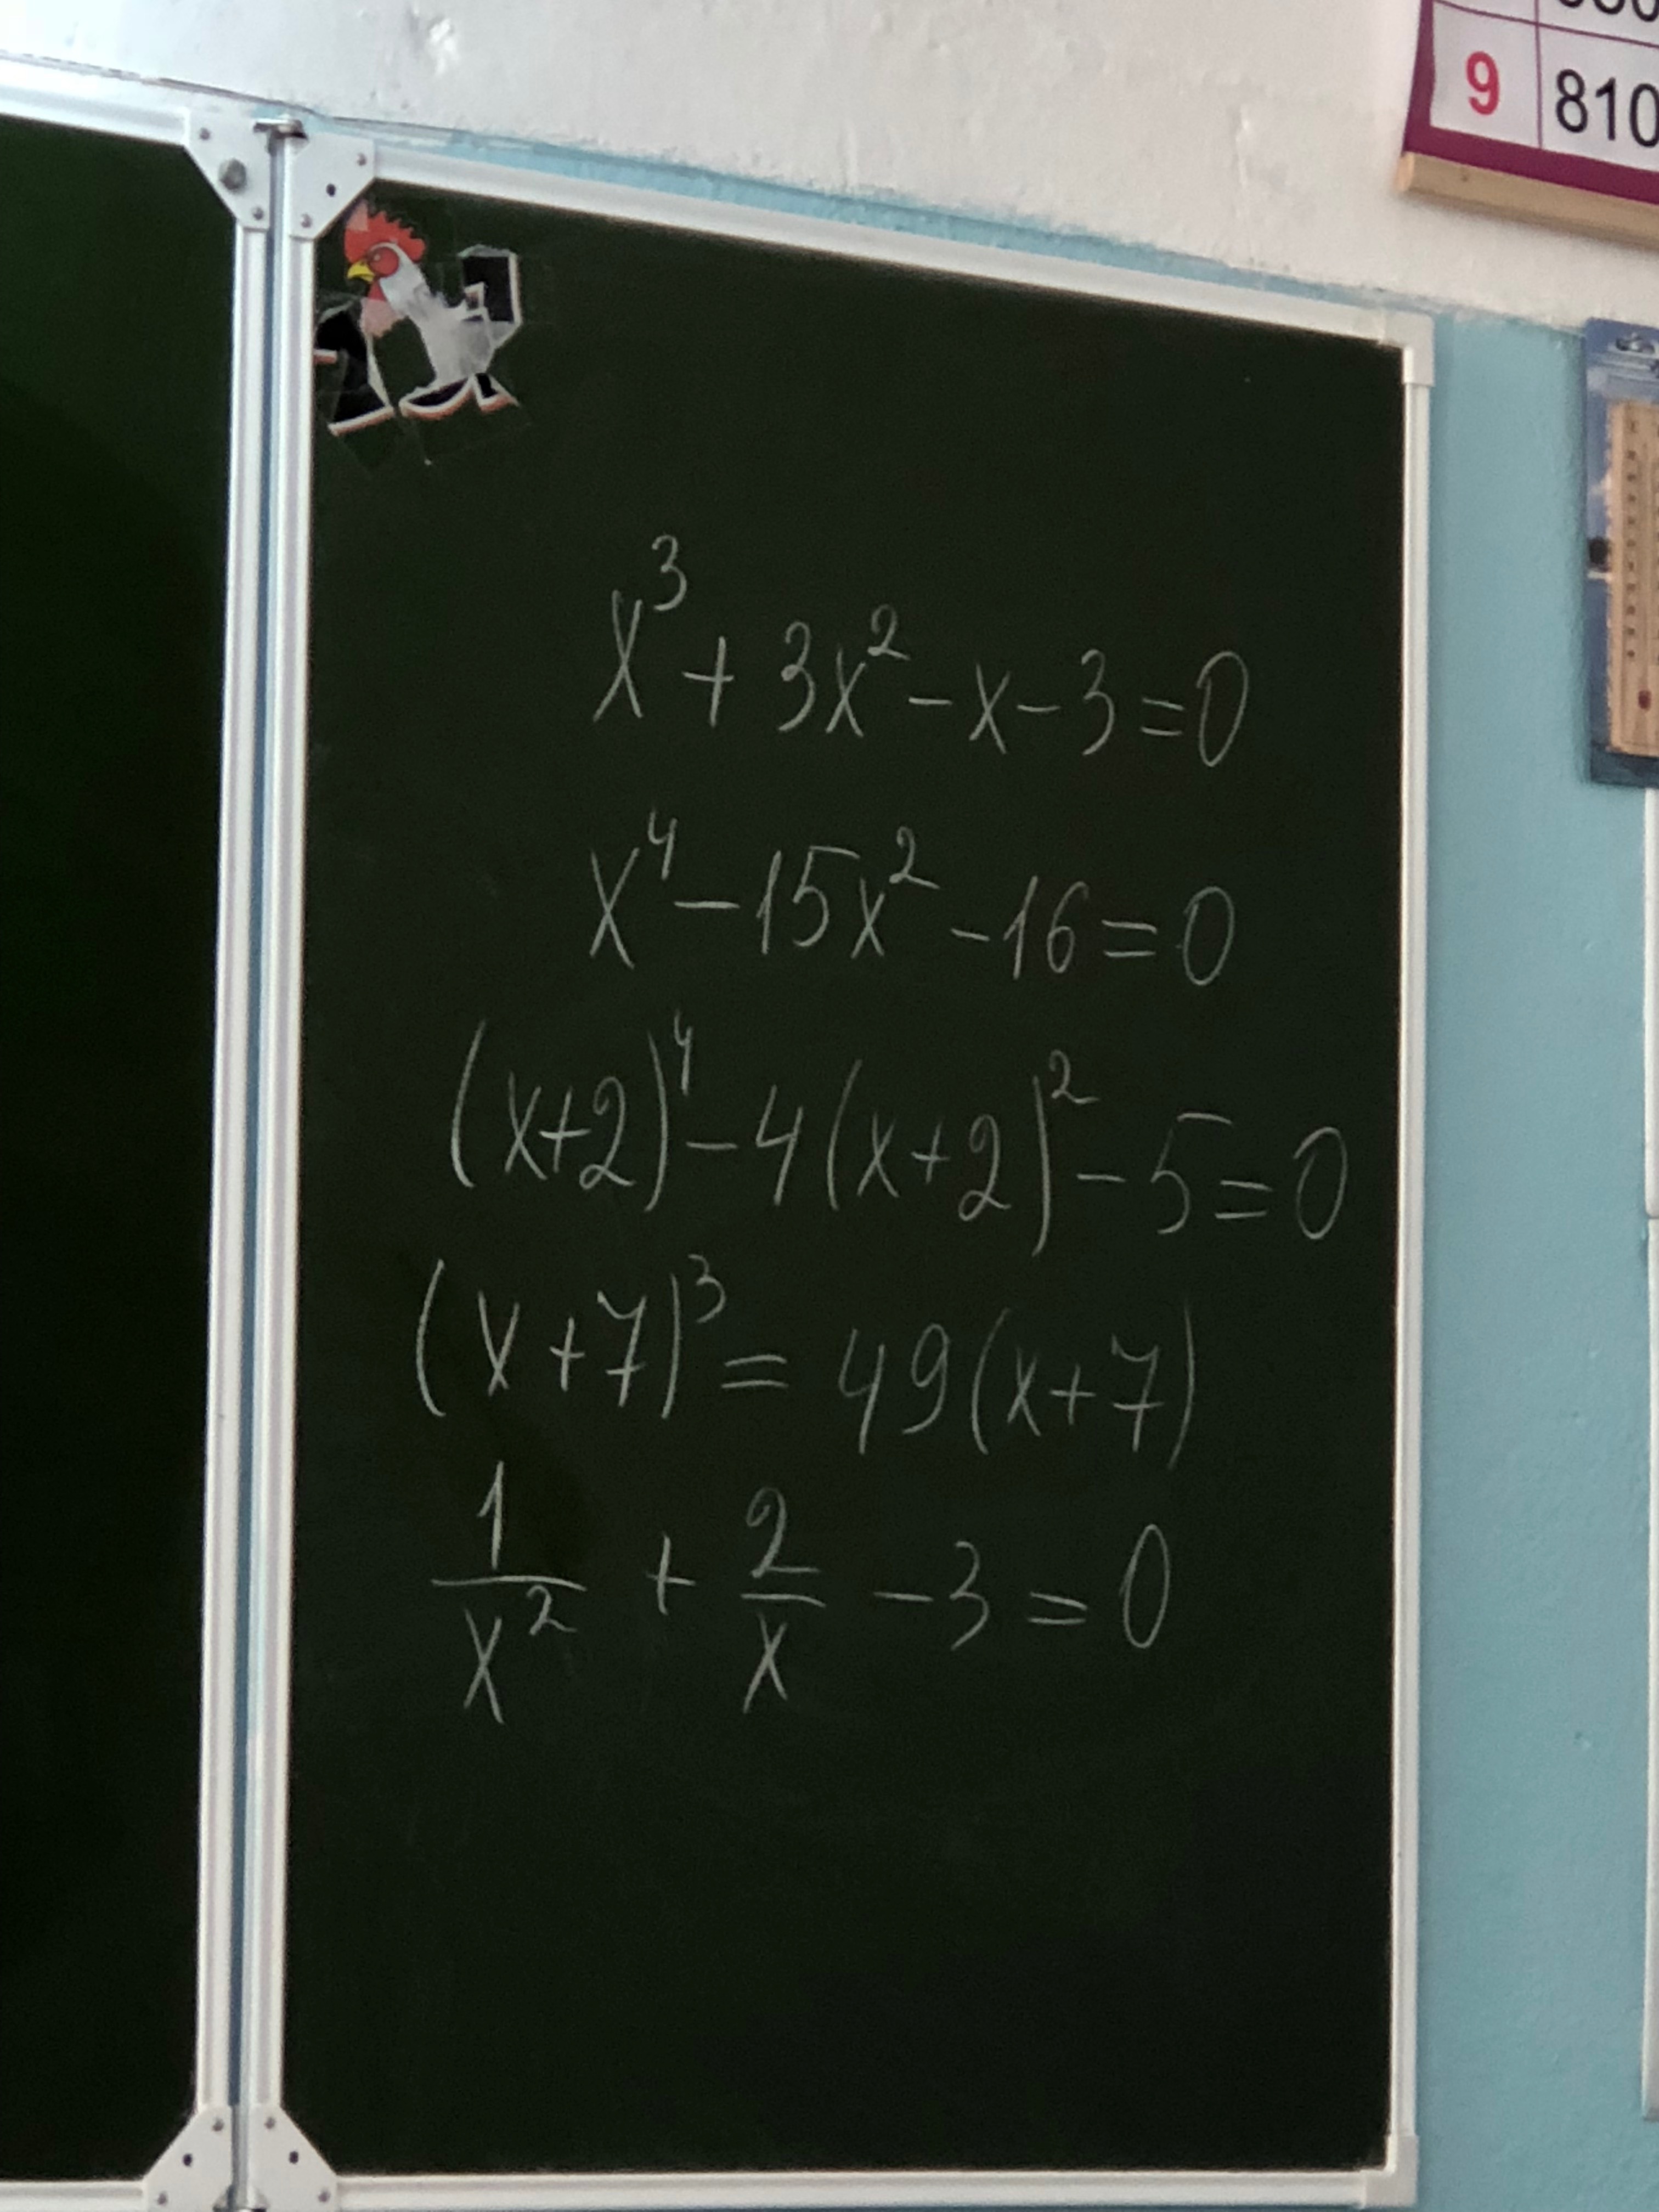 9 810
x³ + 3x² - x - 3 = 0
x⁴ - 15x² - 16 = 0
(x+2)⁴ - 4(x+2)² - 5 = 0
(x+7)³ = 49(x+7)
1/x² + 2/x - 3 = 0